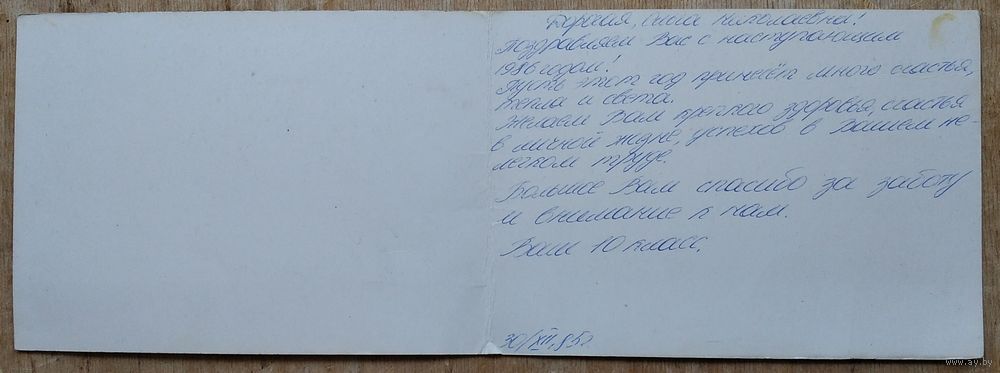 Дорогая, Николаевна!
Поздравляем Вас с наступающим
1986 годом!
Пусть этот год принесёт много счастья,
тепла и света.
Желаем Вам крепкого здоровья, счастья
в личной жизне, успехов в Вашем не-
легком труде.
Большое Вам спасибо за заботу
и внимание к нам.
Ваш 10 класс.
30/XII.85г
www.ay.by